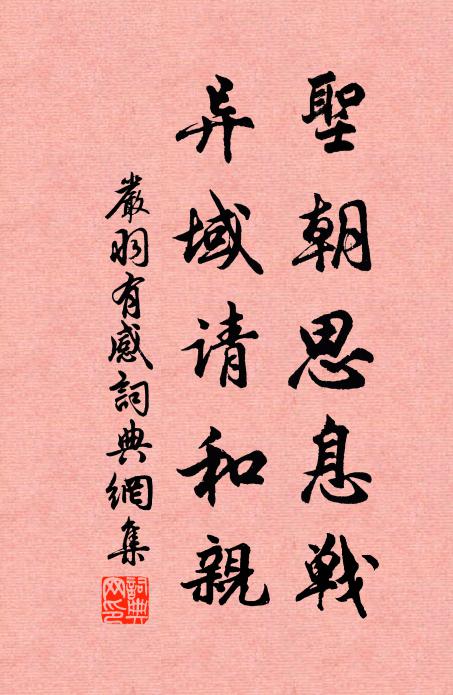 聖朝思息戰
异域请和親
嚴羽有感詞典網集
詞典网印